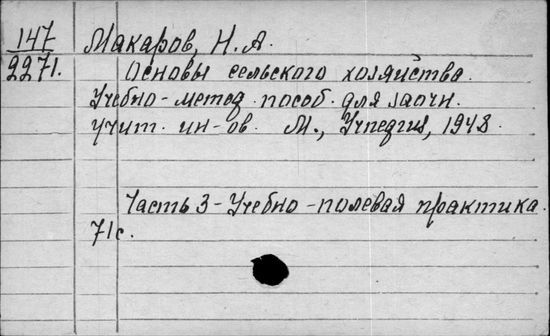 147
2271.
Макаров, Н. А.
Основы сельского хозяйства.
Учебно-метод. пособ. для заочн.
учит. ин-ов. М., Учпедгиз, 1948.
Часть 3 - Учебно-полевая практика.
71с.